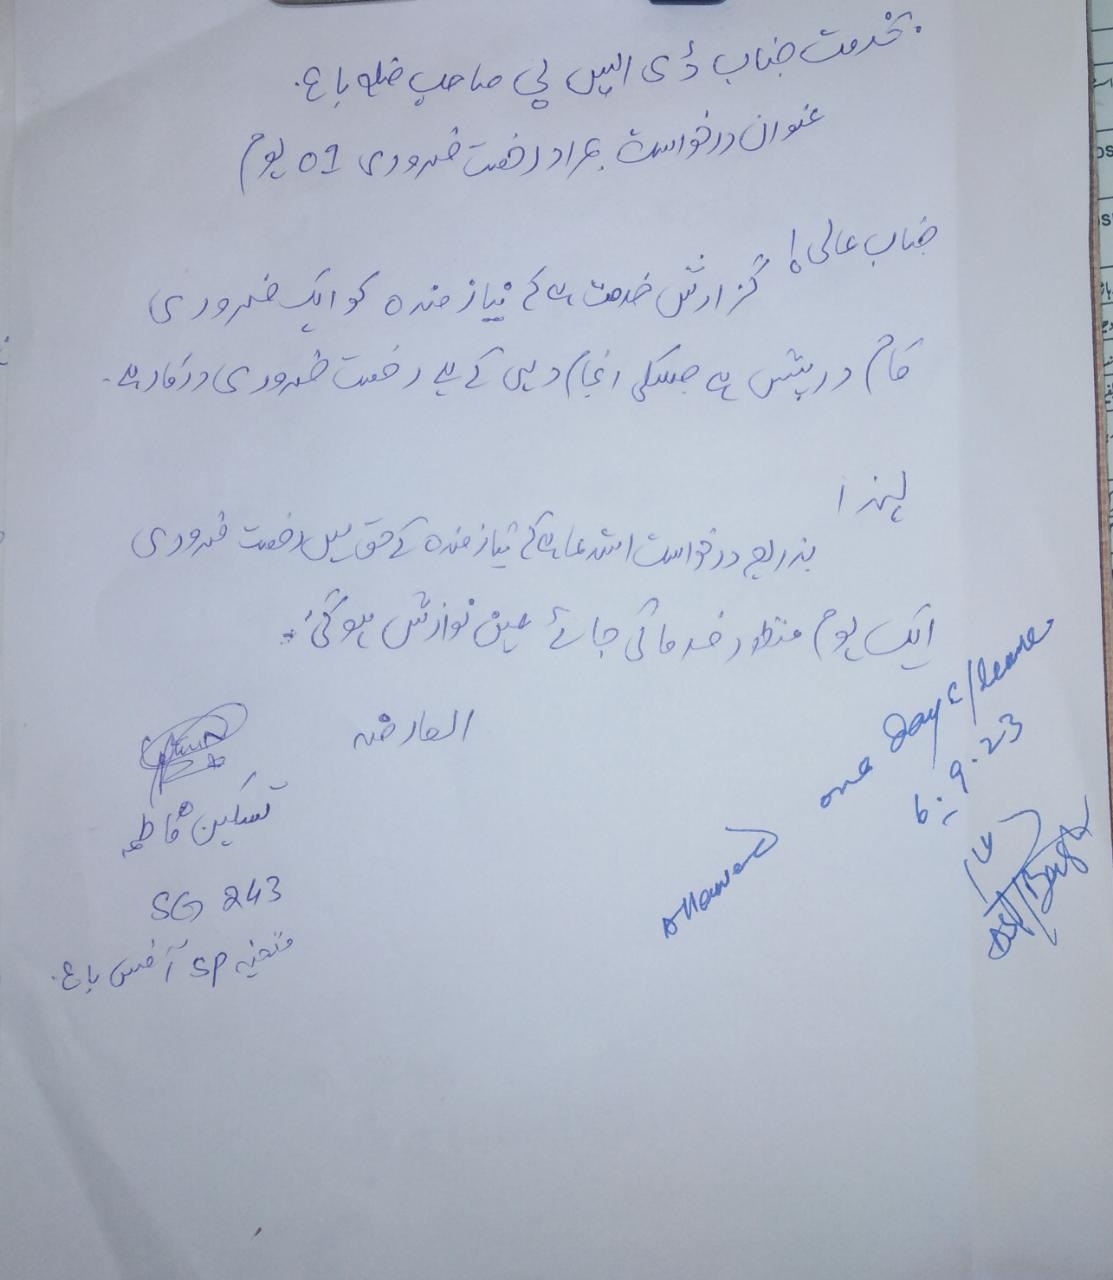 بخدمت جناب ڈی ایس پی صاحب ضلع باغ۔
عنوان درخواست بمراد رخصت ضروری 01 یوم
جناب عالی!
گزارش خدمت ہے کے نیاز مندہ کو ایک ضروری
کام درپیش ہے جسکی انجام دہی کے لیے رخصت ضروری درکار ہے۔
لہذا
بذریعہ درخواست استدعا ہے کے نیاز مندہ کے حق میں رخصت ضروری
ایک یوم منظور فرمائی جائے عین نوازش ہوگی۔
العارضہ
تسکین فاطمہ
SG 243
متعینہ SP آفس باغ۔
Allowed one day c/leave
6-9-23
DSP/Bagh